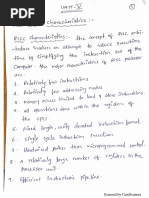 UNIT-V
characteristics :-
RISC characteristics: the concept of RISC archi-
-tecture involves an attempt to reduce execution
time by simplifying the instruction set of the
Computer the major characteristics of RISC processor
are.
1. Relatively few instructions
2. Relatively few addressing modes
3. memory access limited to load & store instructions
4. all operations done within the registers of
the CPU
5. Fixed length, easily decoded instruction format.
6. single cycle instruction execution
7. Hardwired rather than microprogrammed control
8. A relatively large number of registers in the
processor unit
9. Efficient instruction pipeline
Scanned by CamScanner